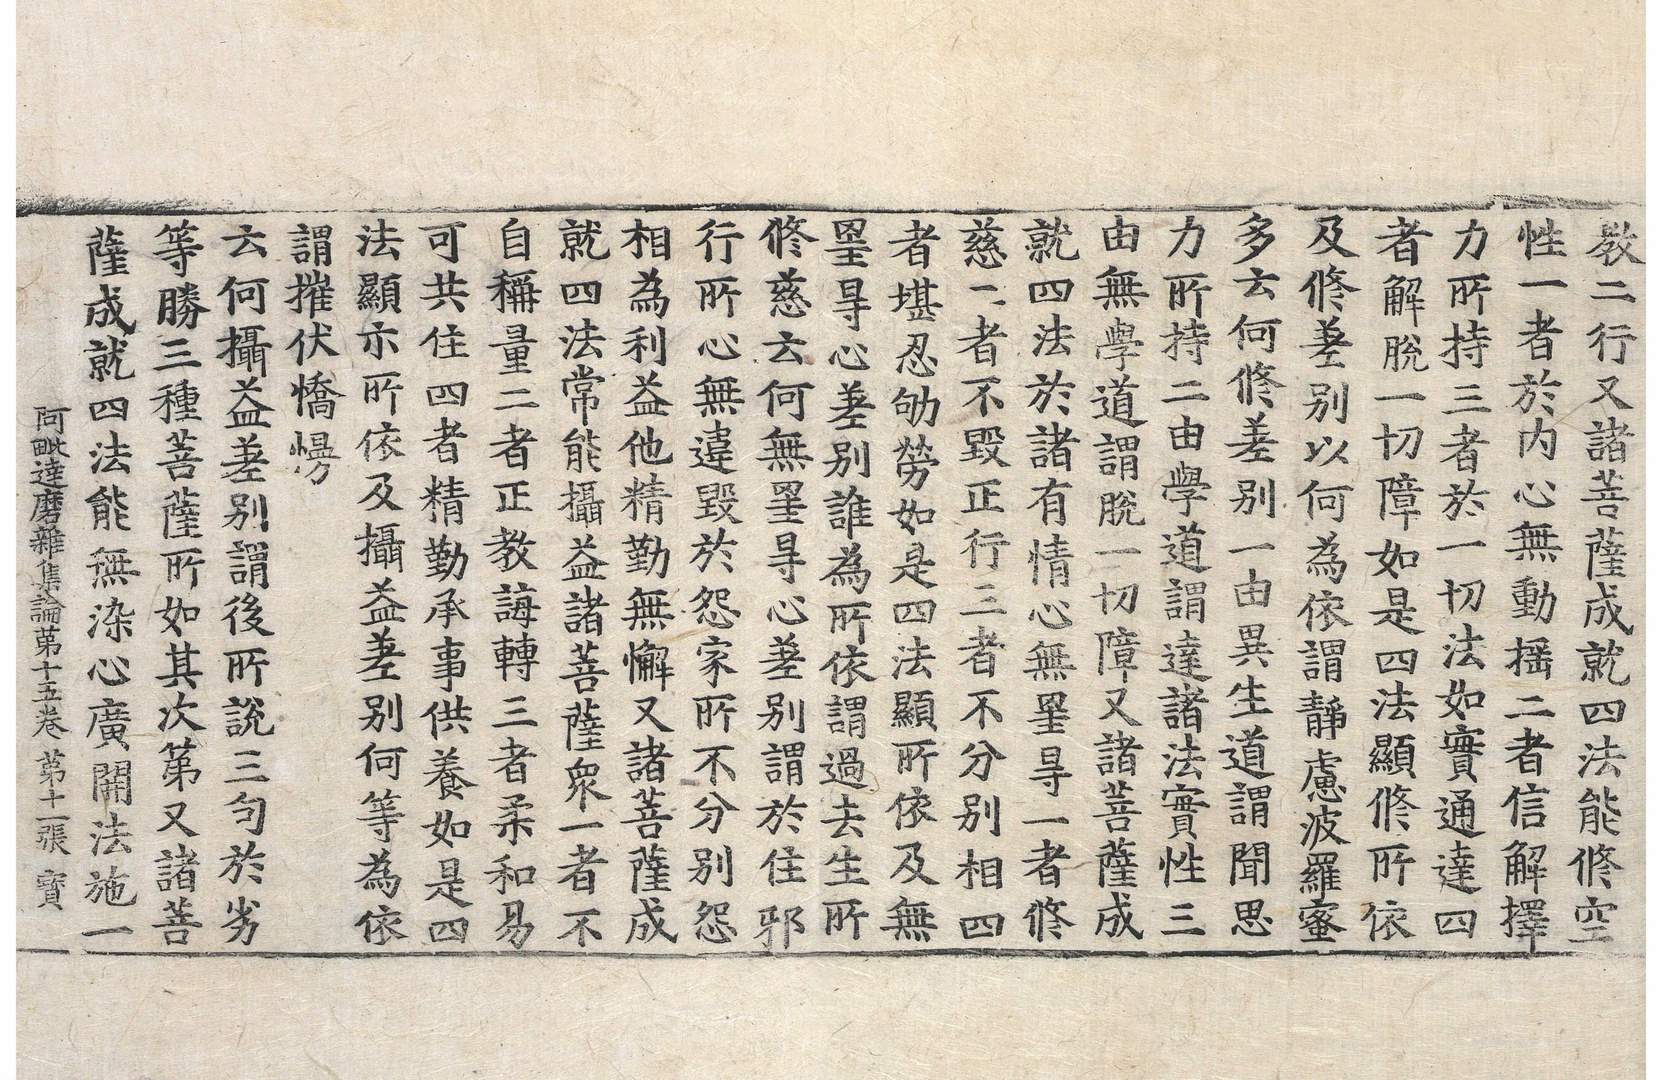 教二行又諸菩薩成就四法能修空
性一者於内心無動揺二者信解擇
力所持三者於一切法如實通達四
者解脫一切障如是四法顯修所依
及修差別以何為依謂靜慮波羅蜜
多云何修差別一由異生道謂聞思
力所持二由學道謂達諸法實性三
由無學道謂脫一切障又諸菩薩成
就四法於諸有情心無罣㝵一者修
慈二者不毀正行三者不分別相四
者堪忍劬勞如是四法顯所依及無
罣㝵心差別誰為所依謂過去生所
修慈云何無罣㝵心差別謂於住邪
行所心無違毀於怨家所不分別怨
相為利益他精勤無懈又諸菩薩成
就四法常能攝益諸菩薩衆一者不
自稱量二者正教誨轉三者柔和易
可共住四者精勤承事供養如是四
法顯示所依及攝益差別何等為依
謂摧伏憍慢
云何攝益差別謂後所說三句於劣
等勝三種菩薩所如其次第又諸菩
薩成就四法能無染心廣開法施一
阿毗達磨雜集論第十五卷 第十二張 賓